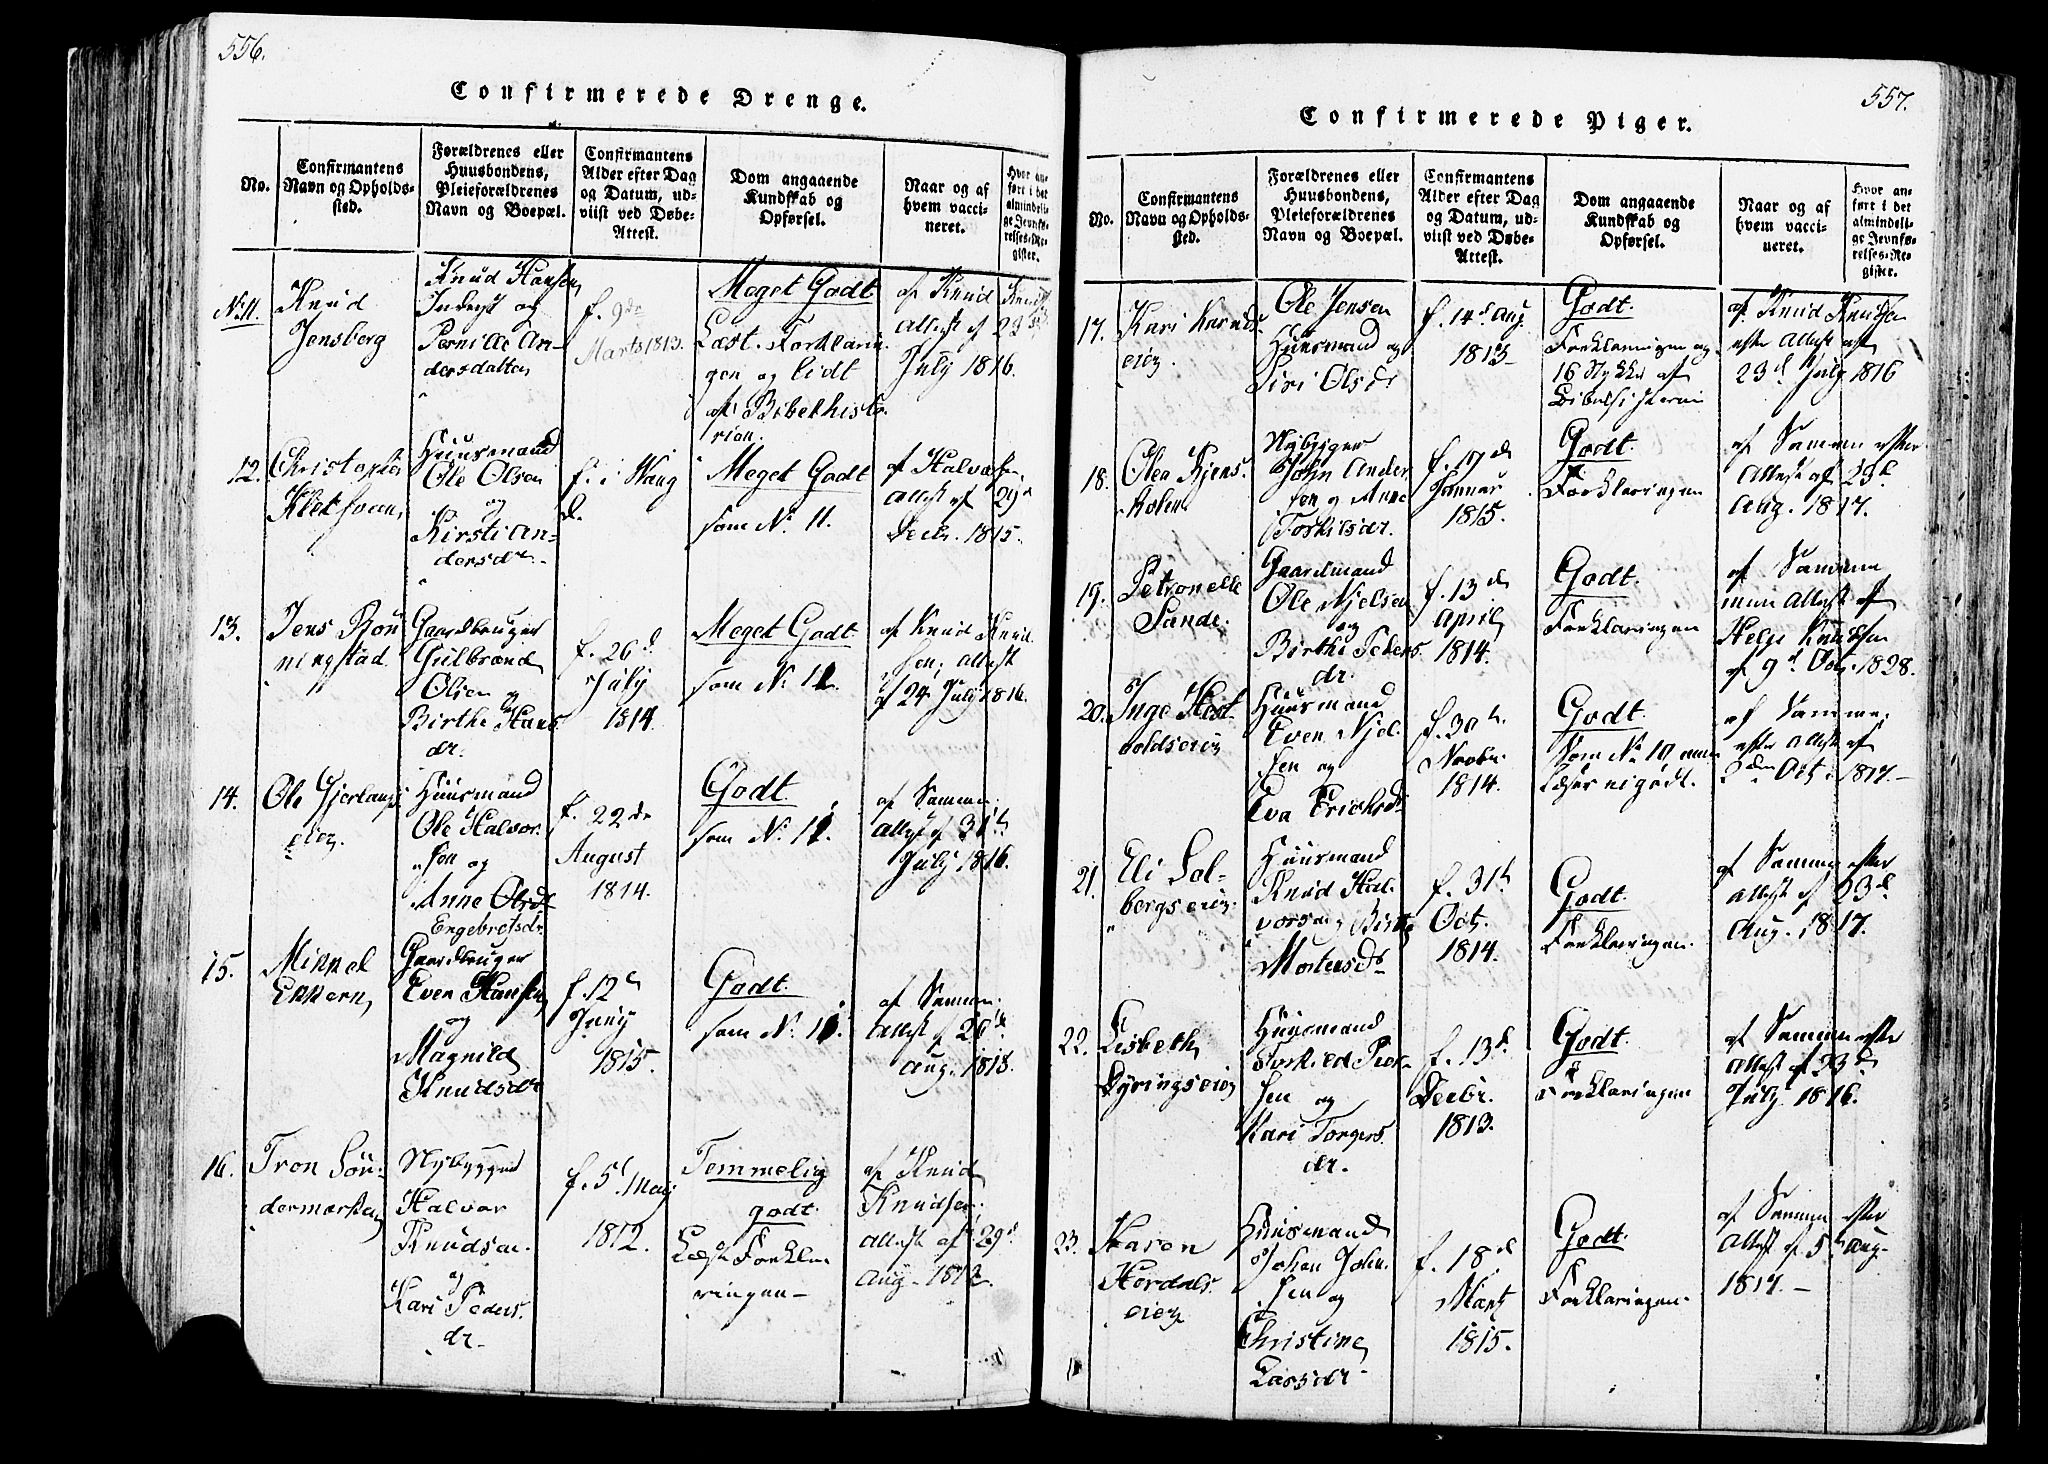 556.
Confirmerede Drenge.
No.
Confirmantens
Navn og Opholds-
sted.
Forældrenes eller
Huusbondens,
Pleieforældrenes
Navn og Boepæl.
Confirmantens
Alder efter Dag
og Datum, ud-
viist ved Døbe-
Attest.
Dom angaaende
Kundskab og
Opførsel.
Naar og af
hvem vacci-
neret.
Hvor an-
ført i det
almindeli-
ge Jevnfø-
relses-Re-
gister.
No. 11.
Knud
Jensberg
Knud Hansen
Inderst og
Pernille An-
dersdatter
f. 9de
Marts 1813.
Meget Godt
Læst Forklarin-
gen og lidt
af Bibelhisto-
rien.
af Knud Knud
Attest af 23d
July 1816.
12.
Christopher
Huusmand
Ole Olsen
og
Kirsti An-
dersdr.
f. i Vang
d.
Meget Godt
som No. 11.
af Halvor
Attest af 29d
Decbr. 1815.
13.
Jens Rön
ningstad
Gaardbruger
Gulbrand
Olsen og
Birthe Hans
dr.
f. 26d
July
1814.
Meget Godt
som No. 11.
af Knud Knud
sen, Attest
af 24 July 1816.
14.
Ole Gjerlaugs
eier.
Huusmand
Ole Halvor
sen og
Anne Olsdr
Engebretsdr.
f. 22de
August
1814.
Godt
som No. 11.
af Samme
Attest af 31th
July 1816.
15.
Mikkel
Ekkern
Gaardbruger
Even Hansen
og
Magnild
Knudsdr
f. 12d
Juny
1815.
Godt
som No. 11.
af Samme
Attest af 26de
Aug. 1818.
16.
Tron Sön-
dermarken
Nybygger
Halvor
Knudsen
og
Kari Peders
dr.
f. 5d May
1812.
Temmelig
godt.
Læst Forkla-
ringen
af Knud
Knudsen
Attest af 29d
Aug. 1812.
557.
Confirmerede Piger.
No.
Confirmantens
Navn og Opholds-
sted.
Forældrenes eller
Huusbondens,
Pleieforældrenes
Navn og Boepæl.
Confirmantens
Alder efter Dag
og Datum, ud-
viist ved Døbe-
Attest.
Dom angaaende
Kundskab og
Opførsel.
Naar og af
hvem vacci-
neret.
Hvor an-
ført i det
almindeli-
ge Jevnfø-
relses-Re-
gister.
17.
Kari
eier.
Ole Jensen
Huusmand og
Siri Olsdr
f. 14d Aug.
1813
Godt.
Forklaringen og
16 Stykker af
Bibelhistorien
af Knud Knudsen
efter Attest af
23d July 1816
18.
Olea
Nybygger
John Ander
sen og Anne
Torkilsdr.
f. 19d
Januar
1815.
Godt.
Forklaringen
af Samme efter
Attest af 23d
Aug. 1817.
19.
Petronelle
Sande.
Gaardmand
Ole Njelsen
og
Birthe Peders
dr.
f. 13d
April
1814.
Godt.
Forklaringen
af Samme
men Attest af
Helge Knudsen
af 9d Octr. 1828.
20.
Inge
voldseier
Huusmand
Even Njel-
sen og
Eva Erichsdr
f. 30th
Novbr.
1814.
Godt.
Som No 10, men
læser ei godt.
af Samme
efter Attest af
Octr. 1817.
21.
Eli Sol-
bergseier.
Huusmand
Knud Hal-
vorsen og Birthe
Mortensdr
f. 31th
Octr.
1814.
Godt.
Forklaringen.
af Samme efter
Attest af 23d
Aug. 1817.
22.
Lisbeth
Dyringseier
Huusmand
Torkild Peer-
sen og
Kari Torgers
dr.
f. 13d
Decbr.
1813.
Godt.
Forklaringen
af Samme efter
Attest af 23d
July 1816.
23.
Karen
Hordals
eier
Huusmand
Johan John
sen og
Christine
Larsdr
f. 18d
Marts
1815.
Godt.
Forklaringen.
af Samme efter
Attest af 5th Aug.
1817.